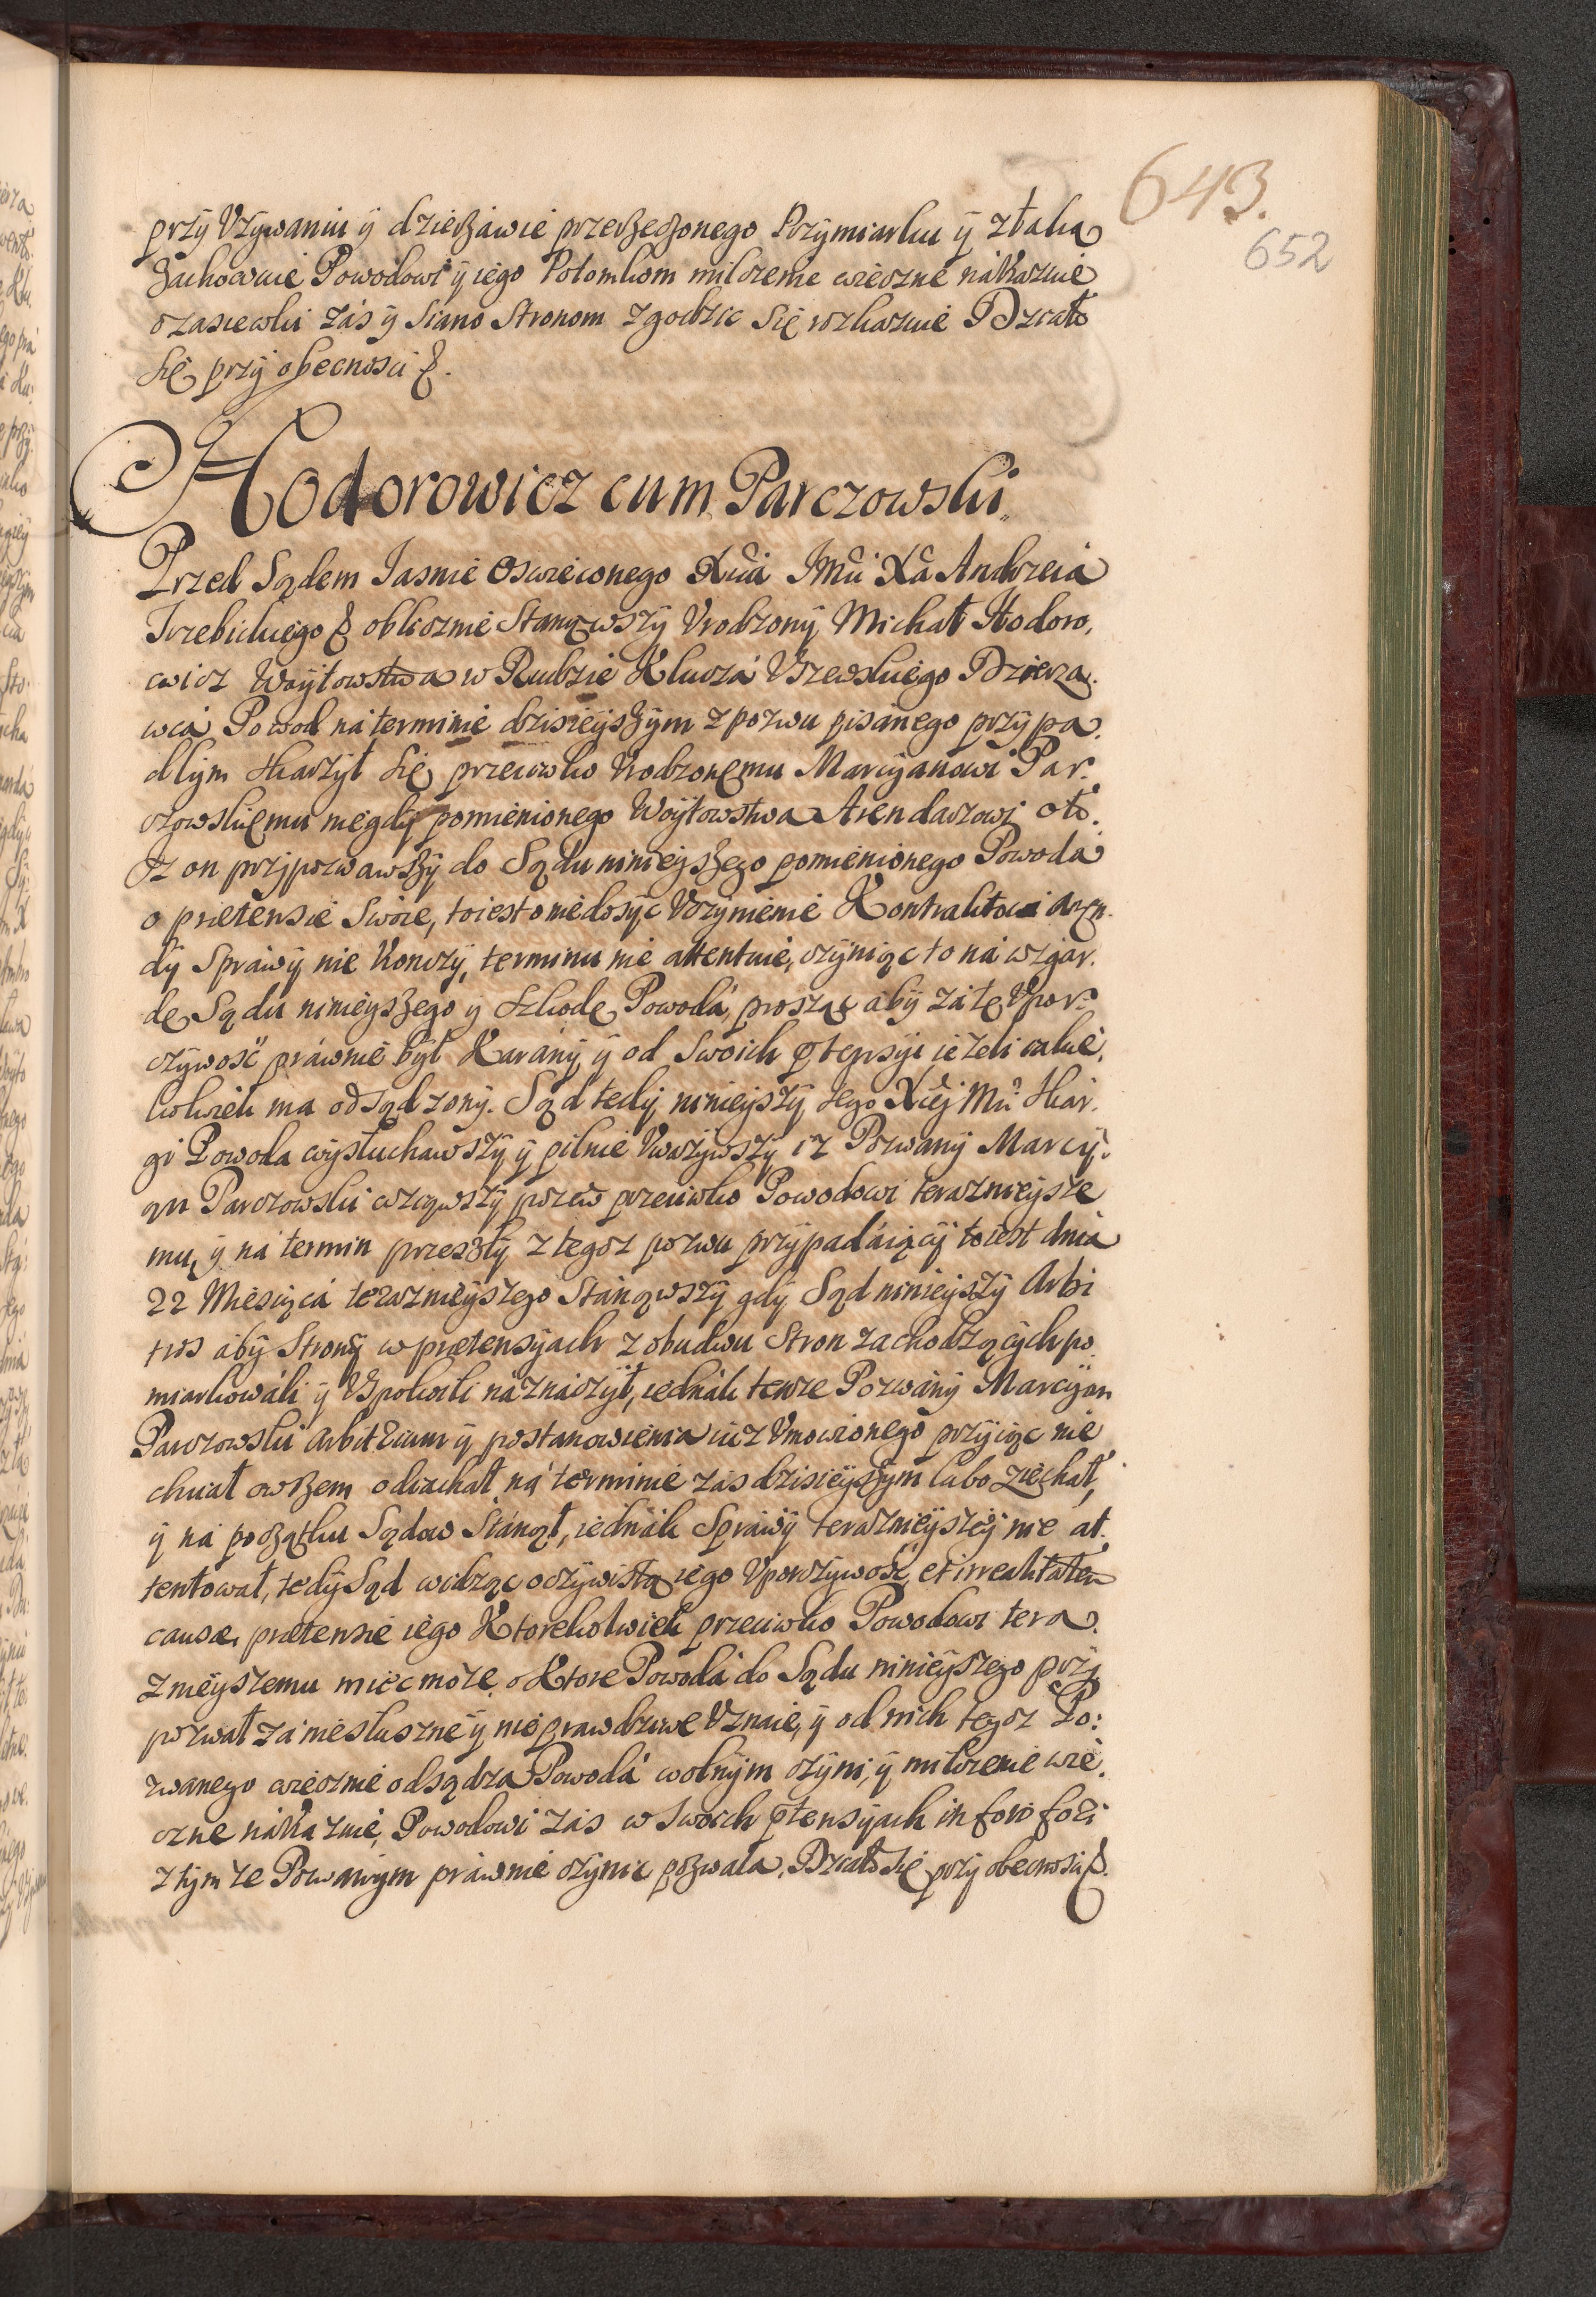 643.
652
przy Vzywaniu y dzierzawie przerzeczonego Przymiarku y z tałia
Zachowuie Powodowi y iego Potomkom milczenie wieczne nakazuie
o zasiewki zas y Siano Stronom zgodzic Się roskazuie Działo
Się przy obecnosci &.
Hodorowicz cum Parczowski
Przed Sądem Jasnie Oswieconego Xcia JMci Xa Andrzeia
Trzebickiego & oblicznie Stanąwszy Vrodzony Michał Hodoro,
wicz Woytowstwa w Rudzie Klucza Vszewskiego Dzierza,
wca Powod na terminie dzisieyszym z pozwu pisanego przypa,
dłym skarzył Się przeciwko Vrodzonemu Marcyanowi Par,
czowskiemu niegdy pomienionego Woytowstwa Arendarzowi oto,
Iz on przypozwawszy do Sądu ninieyszego pomienionego Powoda
o pretensie Swoie, toiest o niedosyc Vczynienie Kontraktowi aren,
dy Sprawy nie Konczy, terminu nie attentuie, czyniąc to na wzgar,
dę Sądu ninieyszego y szkodę Powoda, prosząc aby za tę Vpor,
czywosc prawnie był Karany y od Swoich ptensyi ieżeli iakie,
kolwiek ma odsądzony. Sąd tedy ninieyszy Jego Xcej Mci skar,
gi Powoda wysłuchawszy y pilnie Vwazywszy iz Pozwany Marcy,
an Parczowski wziąwszy pozew przeciwko Powodowi terazniejsze
mu, y na termin przeszły z tegoz pozwu przypadaiący toiest dnia
22 Miesiąca terazniejszego Stanąwszy gdy Sąd ninieyszy Arbi
tros aby Strony w praetensyach z obudwu Stron zachodzących po,
miarkowali y Vspokoili naznaczył, iednak tenze Pozwany Marcyan
Parczowski Arbitrium y postanowienia iuz Vmowionego przyiąc nie
chciał owszem odiachał na terminie zas dzisieyszym lubo ziechał,
y na początku Sądow Stanął, iednak Sprawy terazniejszey nie at,
tentował, tedy Sąd widząc oczywistą iego Vporczywosc, et irrealitatem
causae, praetensie iego Ktorekolwiek przeciwko Powodowi tera,
znieyszemu miec moze o Ktore Powoda do Sądu ninieyszego przy
pozwał za niesłuszne y nieprawdziwe Vznaie, y od nich tegoz Po:
zwanego wiecznie odsądza Powoda wolnym czyni, y milczenie wie,
czne nakazuie, Powodowi zas w Swoich ptensyach in foro fori
z tym ze Pozwanym prawnie czynic pozwala, Działo Się przy obecnosci &.